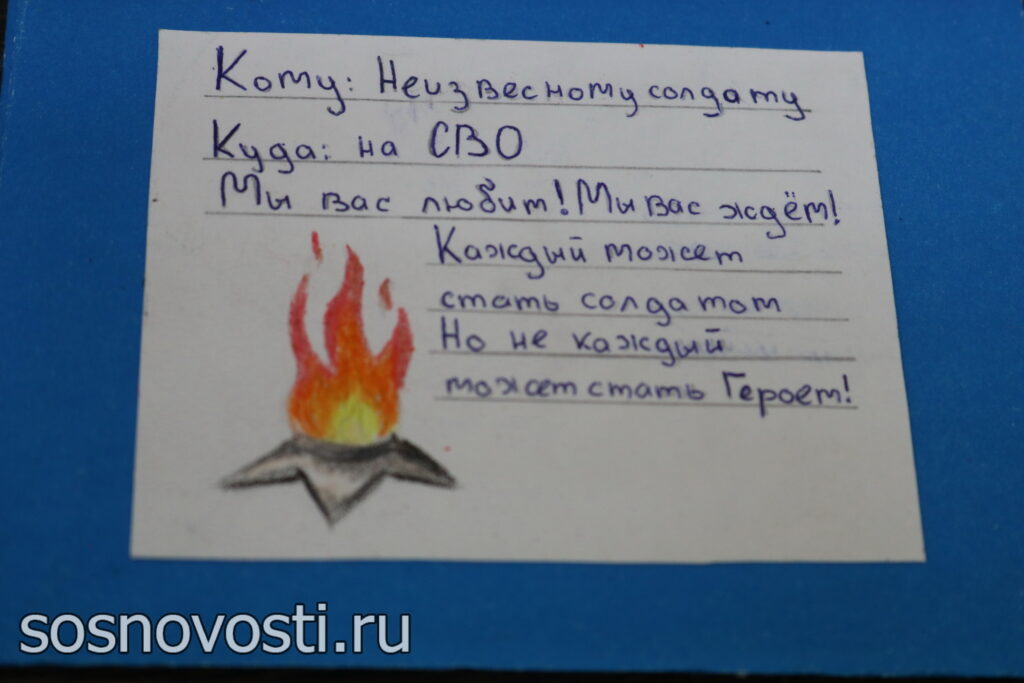 Кому: Неизвесному солдату
Куда: на СВО
Мы вас любит! Мы вас ждём!
Каждый может
стать солдатом
Но не каждый
может стать Героем!
sosnovosti.ru